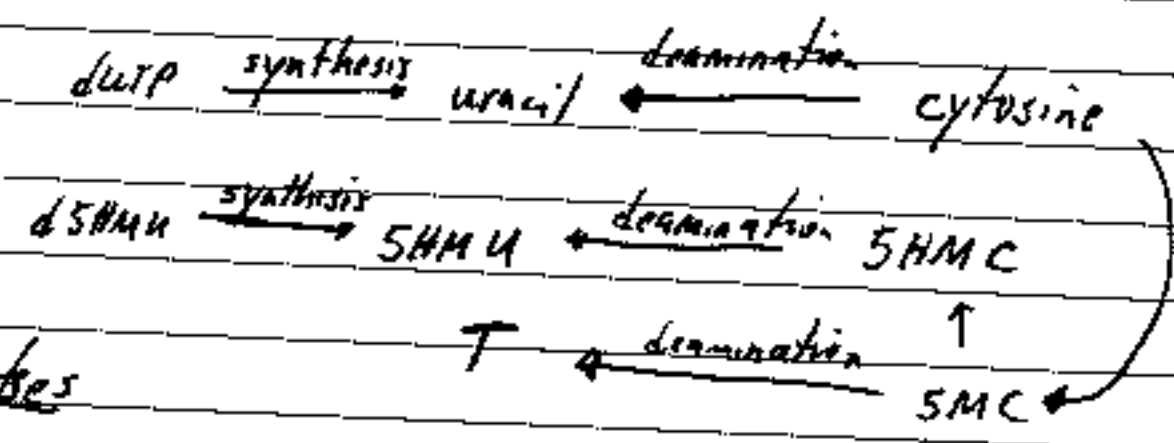 dUTP synthesis uracil deamination cytosine
d5HMU synthesis 5HMU deamination 5HMC
T deamination 5MC